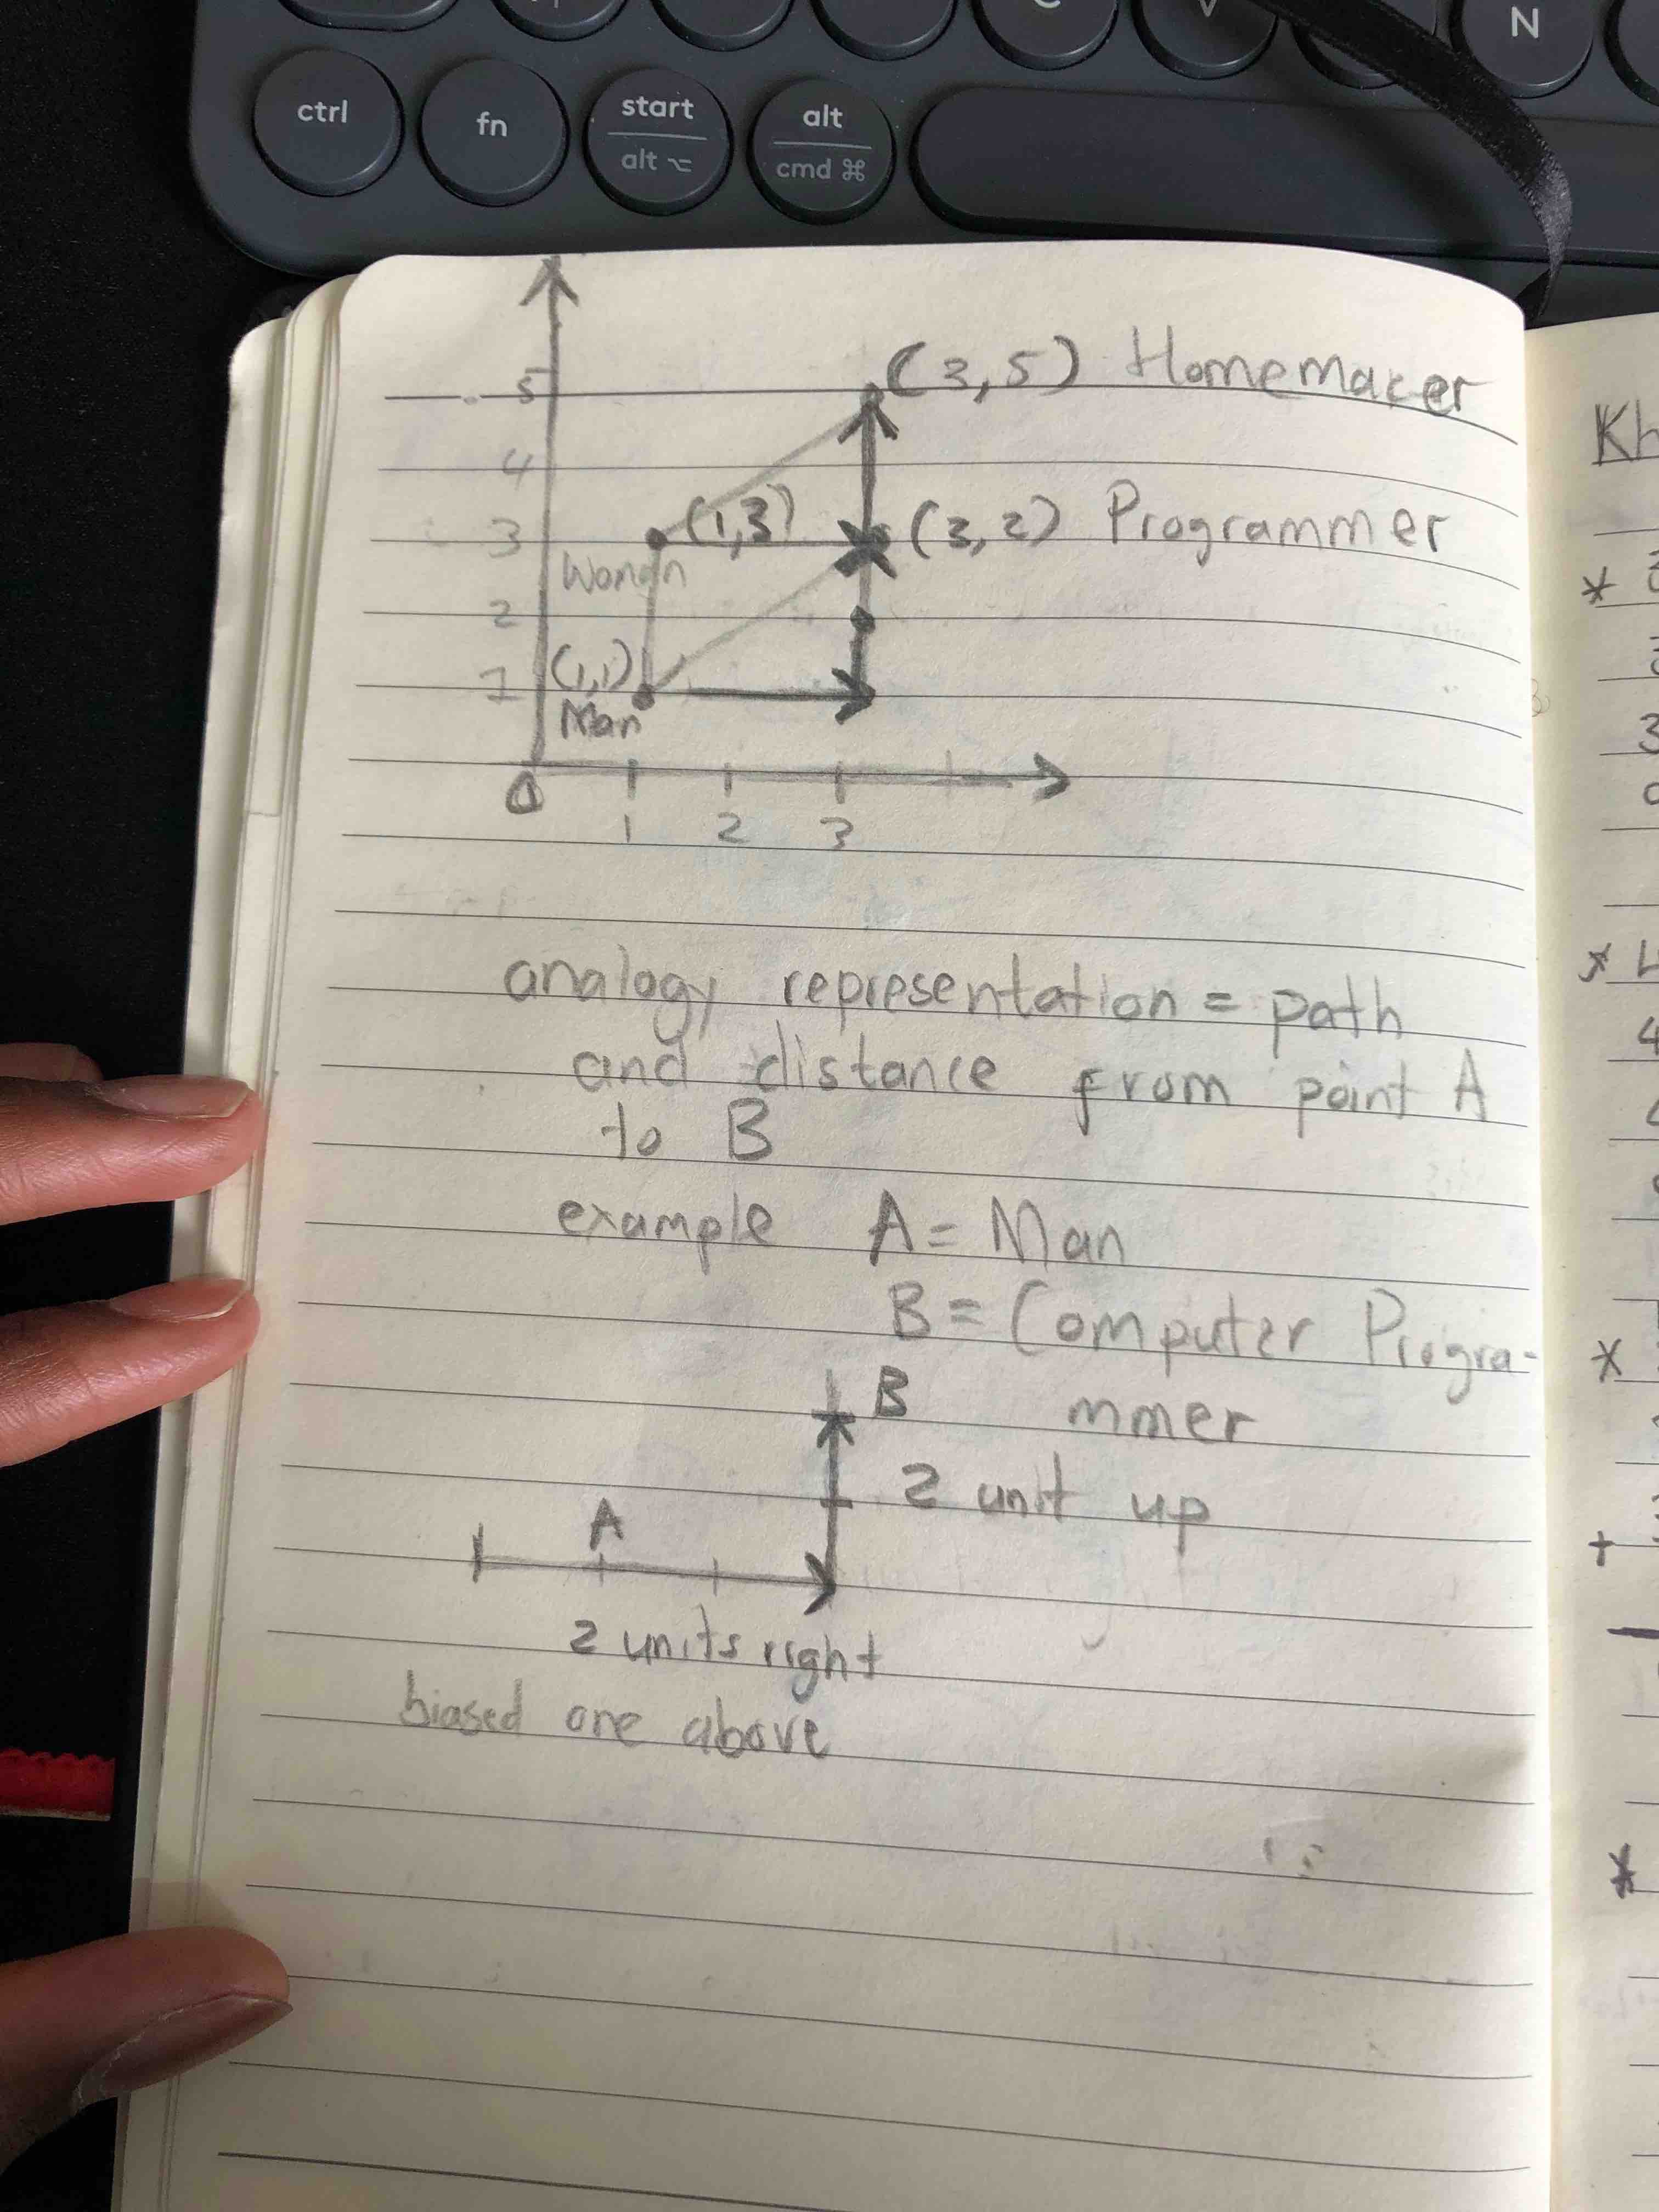 N
ctrl
fn
start
alt ⌥
alt
cmd ⌘
(3,5) Homemaker
5
4
(1,3)
(3,2) Programmer
3
Woman
2
(1,1)
1
Man
0
1 2 3
analogy representation = path
and distance from point A
to B
example A = Man
B = Computer Progra-
mmer
B
2 unit up
A
2 units right
biased one above
Kh
*
3
*
4
*
+
*